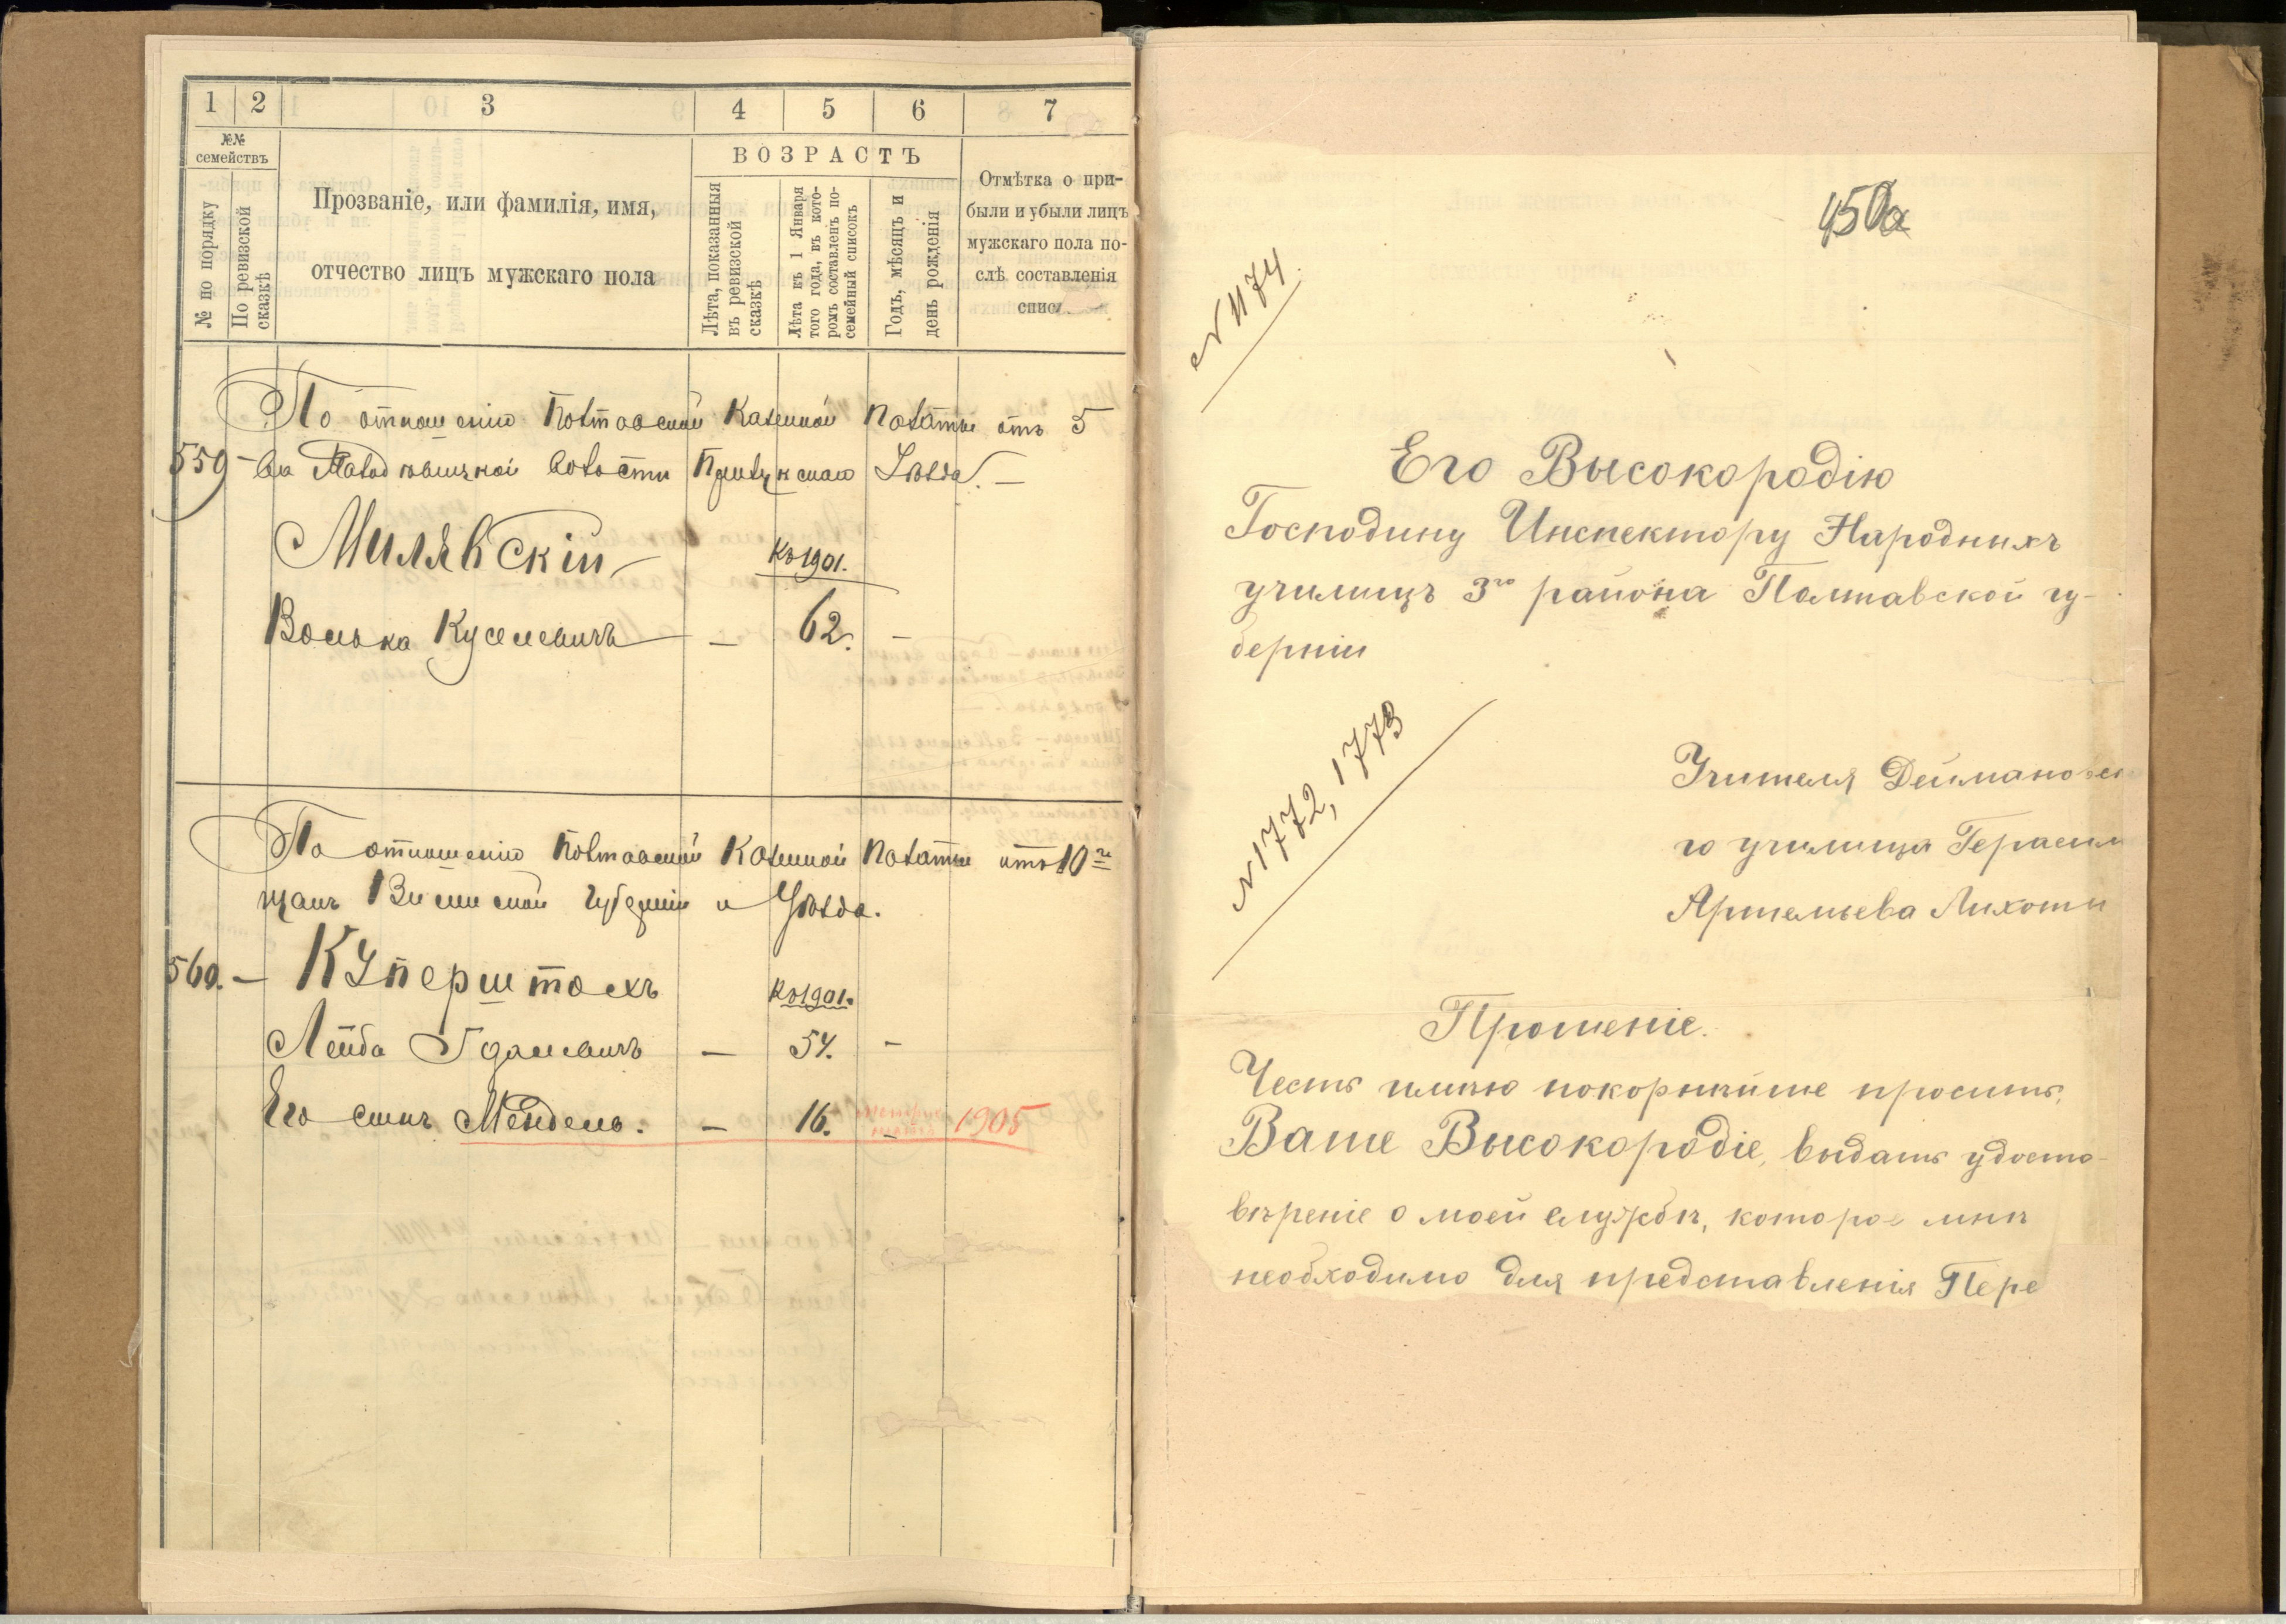 1 2 3 4 5 6 7
№№ семействъ
№ по порядку
По ревизской сказкѣ
Прозваніе, или фамилія, имя,
отчество лицъ мужскаго пола
ВОЗРАСТЪ
Лѣта, показанныя
въ ревизской
сказкѣ
Лѣта къ 1 Января
того года, въ кото-
ромъ составленъ по-
семейный списокъ
Годъ, мѣсяцъ и
день рожденія
Отмѣтка о при-
были и убыли лицъ
мужскаго пола по-
слѣ составленія
спис
По отношенію Полтавской Казенной Палаты отъ 5
559 - волости Прилукскаго Уѣзда. —
Милявскій къ 1901.
Волька Куселевичъ — 62. —
По отношенію Полтавской Казенной Палаты отъ 10го
щанъ Виленской Губерніи и Уѣзда.
560. — Куперштохъ къ 1901.
Лейба — 54. —
Его сынъ Мендель. — 16. — 1905
450а
N 1174.
Его Высокородію
Господину Инспектору Народныхъ
училищъ 3го района Полтавской гу-
берніи
N 1772, 1773
Учителя Деймановск
го училища Герасим
Артемьева Лихоти
Прошеніе.
Честь имѣю покорнѣйше просить,
Ваше Высокородіе, выдать удосто-
вѣреніе о моей службѣ, которое мнѣ
необходимо для представленія Пере